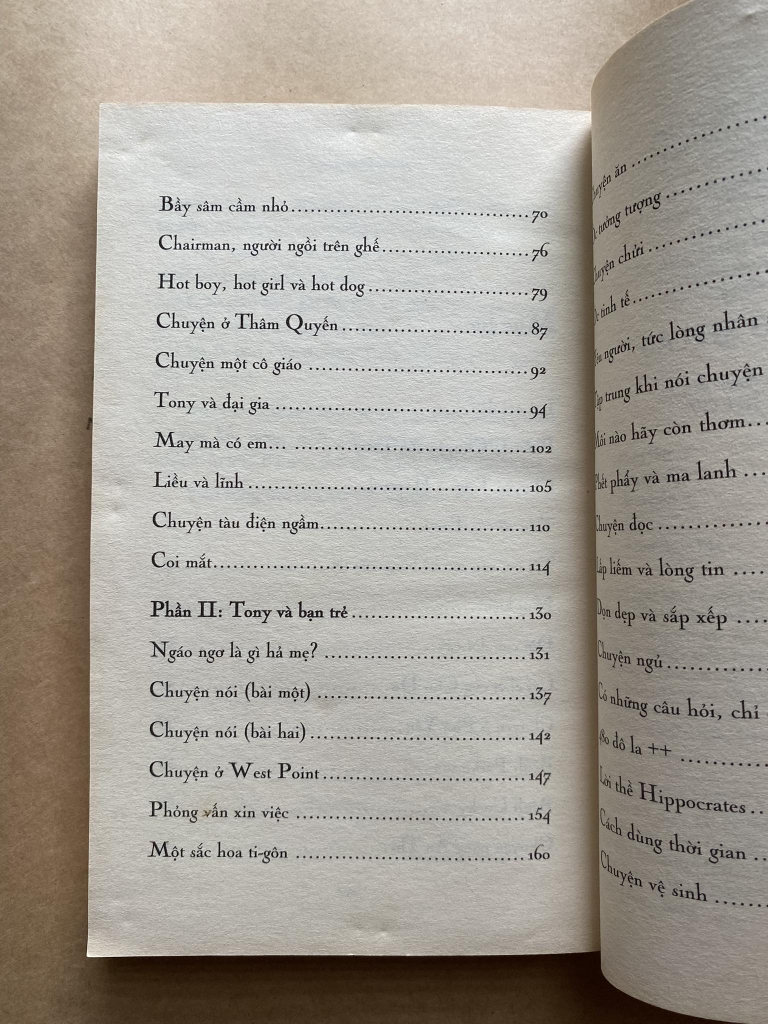 Bầy sâm cầm nhỏ........................................70
Chairman, người ngồi trên ghế.........................76
Hot boy, hot girl và hot dog...........................79
Chuyện ở Thâm Quyến................................87
Chuyện một cô giáo ....................................92
Tony và đại gia ..........................................94
May mà có em... .......................................102
Liều và lĩnh .............................................105
Chuyện tàu điện ngầm..................................110
Coi mắt..................................................114
Phần II: Tony và bạn trẻ ...............................130
Ngáo ngơ là gì hả mẹ? .................................131
Chuyện nói (bài một) ..................................137
Chuyện nói (bài hai) ...................................142
Chuyện ở West Point...................................147
Phỏng vấn xin việc .....................................154
Một sắc hoa ti-gôn .....................................160
ăn ..................
tưởng tượng ..............
chửi ..................
tinh tế..................
người, tức lòng nhân
trung khi nói chuyện
nào hãy còn thơm...
phẩy và ma lanh ...
đọc ..............
liếm và lòng tin ....
dẹp và sắp xếp ....
Chuyện ngủ ............
Có những câu hỏi, chỉ
đô la ++ ..........
Lời thề Hippocrates ..
Cách dùng thời gian ...
Chuyện vệ sinh .......